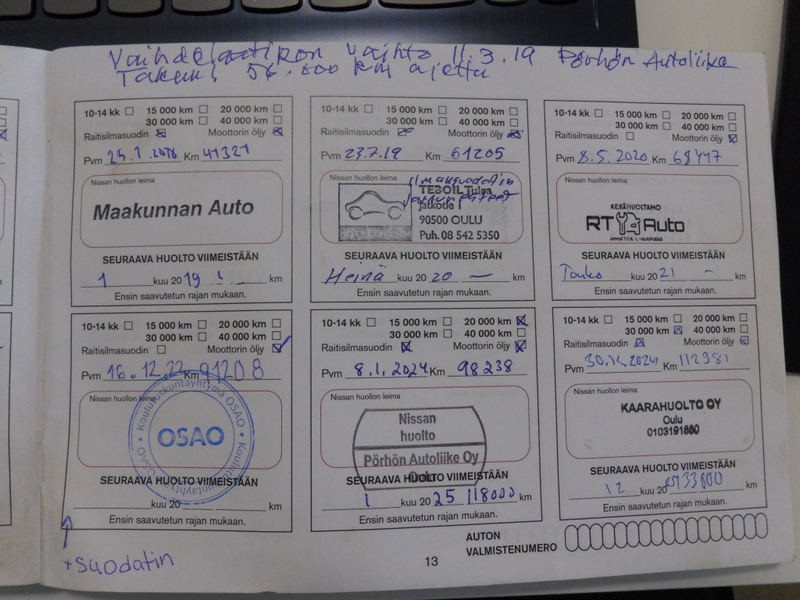 Vaihdelaatikon vaihto 11.3.19 Pörhön Autoliike
Takuu! 56.000 km ajettu
10-14 kk 15 000 km 20 000 km
30 000 km 40 000 km
Raitisilmasuodin Moottorin öljy
Pvm 25.1.2018 Km 41321
Nissan huollon leima
Maakunnan Auto
SEURAAVA HUOLTO VIIMEISTÄÄN
1 kuu 2019 km
Ensin saavutetun rajan mukaan.
10-14 kk 15 000 km 20 000 km
30 000 km 40 000 km
Raitisilmasuodin Moottorin öljy
Pvm 23.7.19 Km 61205
Nissan huollon leima
ilmansuodatin
TEBOIL Tulpa
Jatkotie 1
90500 OULU
Puh. 08 542 5350
SEURAAVA HUOLTO VIIMEISTÄÄN
Heinä kuu 2020 — km
Ensin saavutetun rajan mukaan.
10-14 kk 15 000 km 20 000 km
30 000 km 40 000 km
Raitisilmasuodin Moottorin öljy
Pvm 8.5.2020 Km 69447
Nissan huollon leima
KESÄHUOLTAMO
RT Auto
SEURAAVA HUOLTO VIIMEISTÄÄN
Touko kuu 2021 - km
Ensin saavutetun rajan mukaan.
10-14 kk 15 000 km 20 000 km
30 000 km 40 000 km
Raitisilmasuodin Moottorin öljy
Pvm 16.12.22 Km 91208
Nissan huollon leima
Koulutuskuntayhtymä OSAO
OSAO
SEURAAVA HUOLTO VIIMEISTÄÄN
kuu 20 km
Ensin saavutetun rajan mukaan.
+suodatin
10-14 kk 15 000 km 20 000 km
30 000 km 40 000 km
Raitisilmasuodin Moottorin öljy
Pvm 8.1.2024 Km 98238
Nissan huollon leima
Nissan
huolto
Pörhön Autoliike Oy
Oulu
SEURAAVA HUOLTO VIIMEISTÄÄN
1 kuu 2025 118000 km
Ensin saavutetun rajan mukaan.
10-14 kk 15 000 km 20 000 km
30 000 km 40 000 km
Raitisilmasuodin Moottorin öljy
Pvm Km 112981
Nissan huollon leima
KAARAHUOLTO OY
Oulu
0103191660
SEURAAVA HUOLTO VIIMEISTÄÄN
12 kuu 20 km
Ensin saavutetun rajan mukaan.
AUTON
VALMISTENUMERO
13